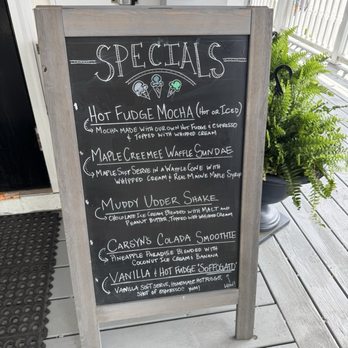 SPECIALS
HOT FUDGE MOCHA (HOT OR ICED)
MOCHA MADE WITH OUR OWN HOT FUDGE & ESPRESSO
& TOPPED WITH WHIPPED CREAM
MAPLE CREEMEE WAFFLE SUNDAE
MAPLE SOFT SERVE IN A WAFFLE CONE WITH
WHIPPED CREAM & REAL MAINE MAPLE SYRUP
MUDDY UDDER SHAKE
CHOCOLATE ICE CREAM BLENDED WITH MALT AND
PEANUT BUTTER, TOPPED WITH WHIPPED CREAM
CARSYN'S COLADA SMOOTHIE
PINEAPPLE PARADISE BLENDED WITH
COCONUT ICE CREAM & BANANA
VANILLA & HOT FUDGE 'SOFFOGATO'
VANILLA SOFT SERVE, HOMEMADE HOT FUDGE,
SHOT OF ESPRESSO YUM!